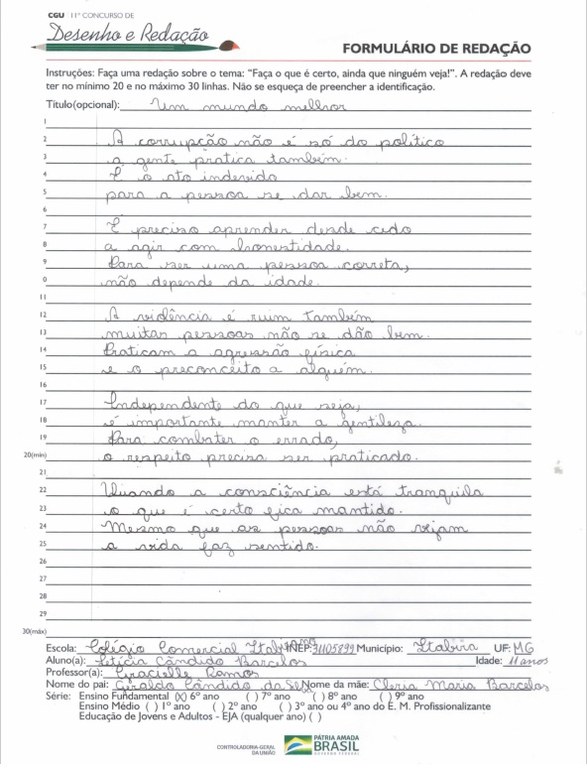 CGU 11º CONCURSO DE
Desenho e Redação
FORMULÁRIO DE REDAÇÃO
Instruções: Faça uma redação sobre o tema: "Faça o que é certo, ainda que ninguém veja!". A redação deve
ter no mínimo 20 e no máximo 30 linhas. Não se esqueça de preencher a identificação.
Título(opcional): Um mundo melhor
1
2 A corrupção não é só do político
3 a gente pratica também.
4 É o ato indevido
5 para a pessoa se dar bem.
6
7 É preciso aprender desde cedo
8 a agir com honestidade.
9 Para ser uma pessoa correta,
0 não depende da idade.
11
12 A violência é ruim também
13 muitas pessoas não se dão bem.
14 Praticam a agressão física
15 e o preconceito a alguém.
16
17 Independente do que seja,
18 é importante manter a gentileza.
19 Para combater o errado,
20(mín) o respeito precisa ser praticado.
21
22 Quando a consciência está tranquila
23 o que é certo fica mantido.
24 Mesmo que as pessoas não vejam
25 a vida faz sentido.
26
27
28
29
30(máx)
Escola: Colégio Comercial Itabirano INEP: 31105899 Município: Itabira UF: MG
Aluno(a): Letícia Cândido Barcelos Idade: 11 anos
Professor(a): Gracielle Ramos
Nome do pai: Geraldo Cândido da Nome da mãe: Cleria Maria Barcelos
Série: Ensino Fundamental (X) 6º ano ( ) 7º ano ( ) 8º ano ( ) 9º ano
Ensino Médio ( ) 1º ano ( ) 2º ano ( ) 3º ano ou 4º ano do E. M. Profissionalizante
Educação de Jovens e Adultos - EJA (qualquer ano) ( )
CONTROLADORIA-GERAL
DA UNIÃO
PÁTRIA AMADA
BRASIL
GOVERNO FEDERAL